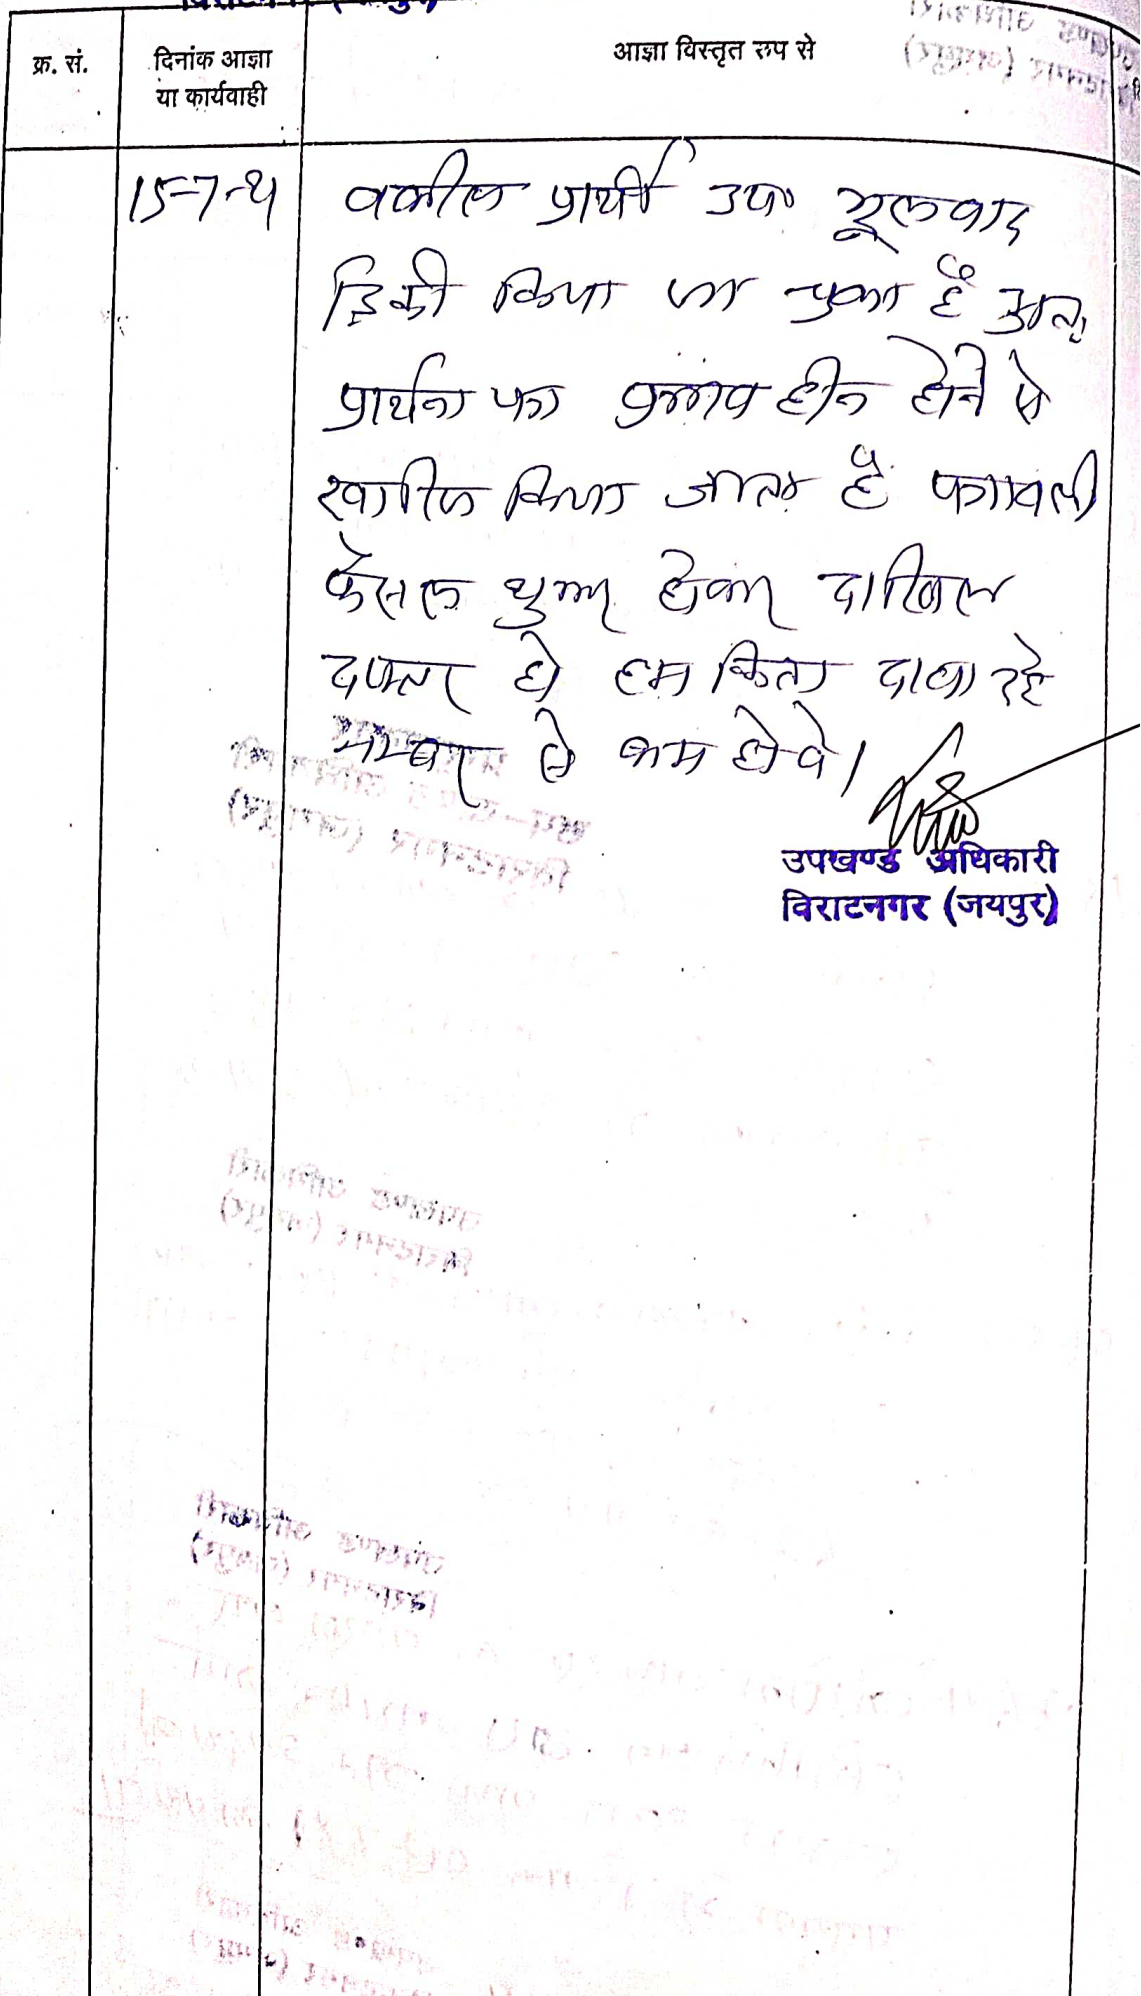 क्र. सं.
दिनांक आज्ञा
या कार्यवाही
आज्ञा विस्तृत रुप से
15-7-21
वकील प्रार्थी उप० मूलवाद
डिक्री किया जा चुका है अतः
प्रार्थना पत्र प्रभाव हीन होने से
खारिज किया जाता है पत्रावली
फैसल शुमार होकर दाखिल
दफ्तर हो हम किता दावा रहे
नम्बर से कम होवे।
उपखण्ड अधिकारी
विराटनगर (जयपुर)